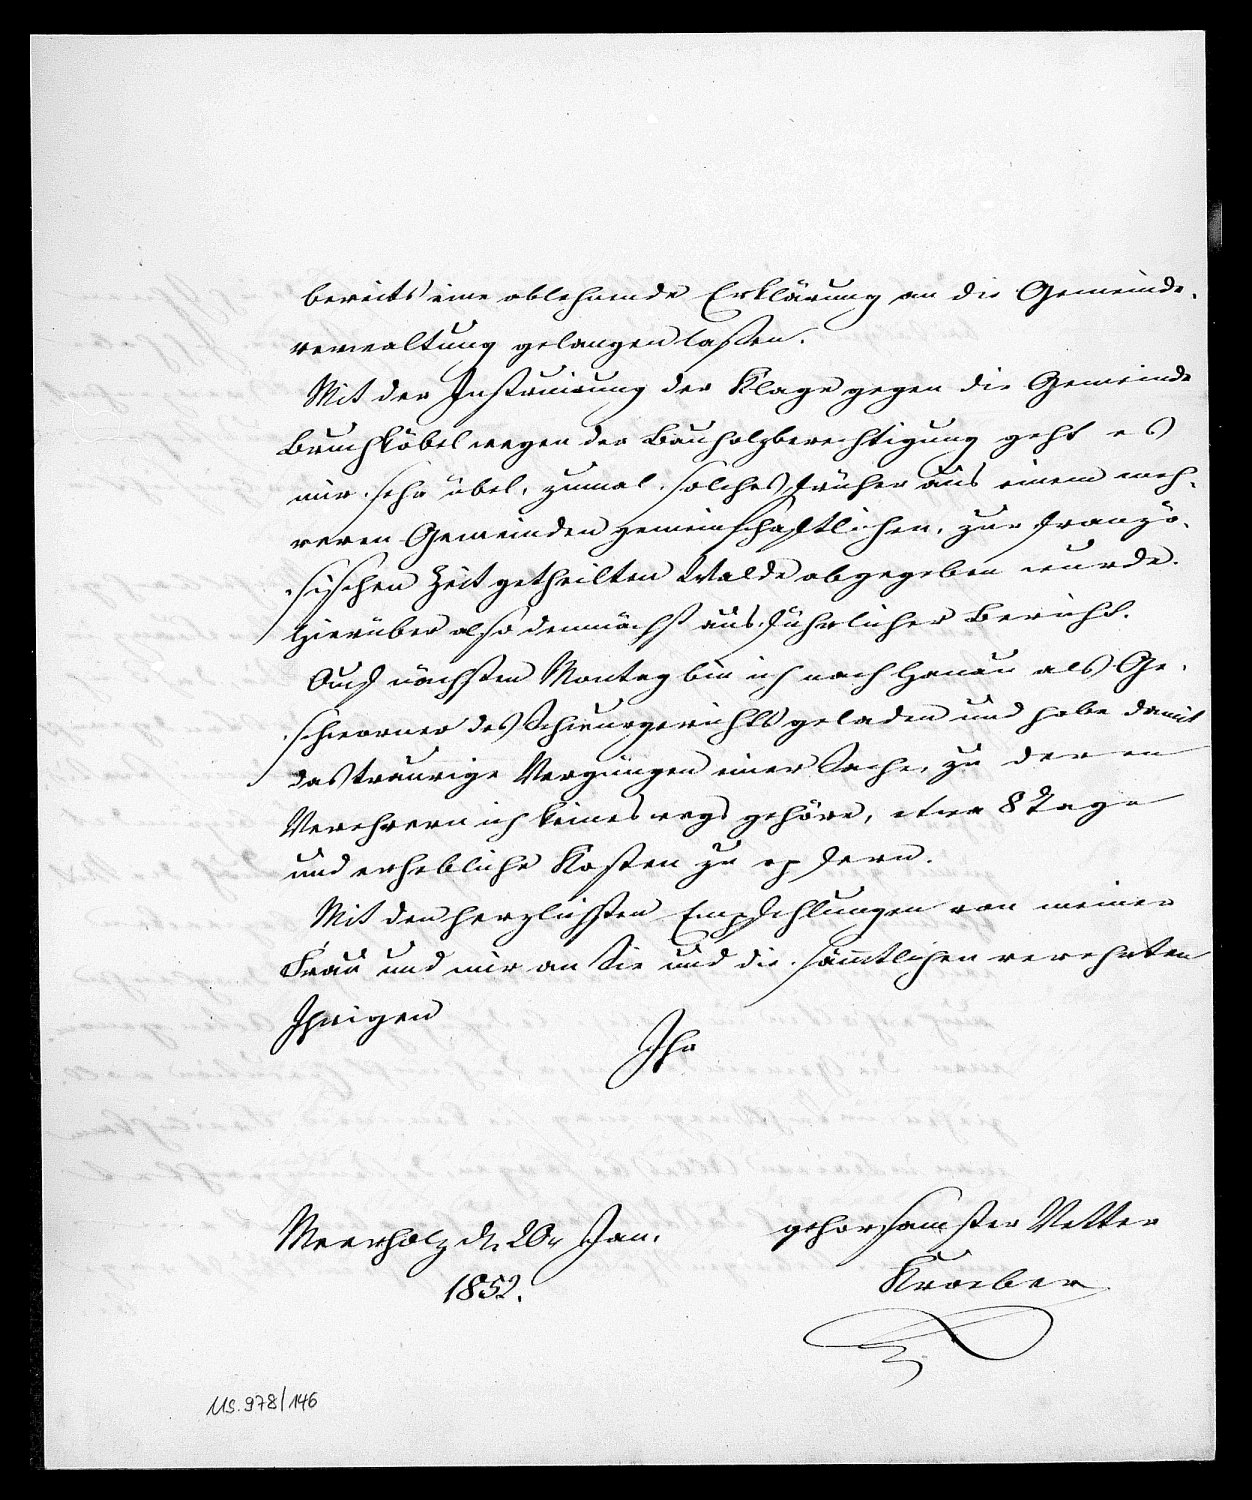 bereits eine ablehnende Erklärung an die Gemeinde-
verwaltung gelangen laßen.
Mit der Instruirung der Klage gegen die Gemeinde
Bruchköbel wegen der Bauholzberechtigung geht es
mir sehr übel, zumal solches früher aus einem meh-
reren Gemeinden gemeinschaftlichen, zur franzö-
sischen Zeit getheilten Walde abgegeben wurde.
Hierüber also demnächst ausführlicher Bericht.
Auf nächsten Montag bin ich nach Hanau als Ge-
schworner des Schwurgerichts geladen und habe damit
das traurige Vergnügen einer Sache, zu deren
Verehrern ich keineswegs gehöre, etwa 8 Tage
und erhebliche Kosten zu opfern.
Mit den herzlichsten Empfehlungen von meiner
Frau und mir an Sie und die sämmtlichen verehrten
Ihrigen
Ihr
gehorsamster Vetter
Kroeber
Meerholz d. 20n Jan.
1852.
Ms. 978/146